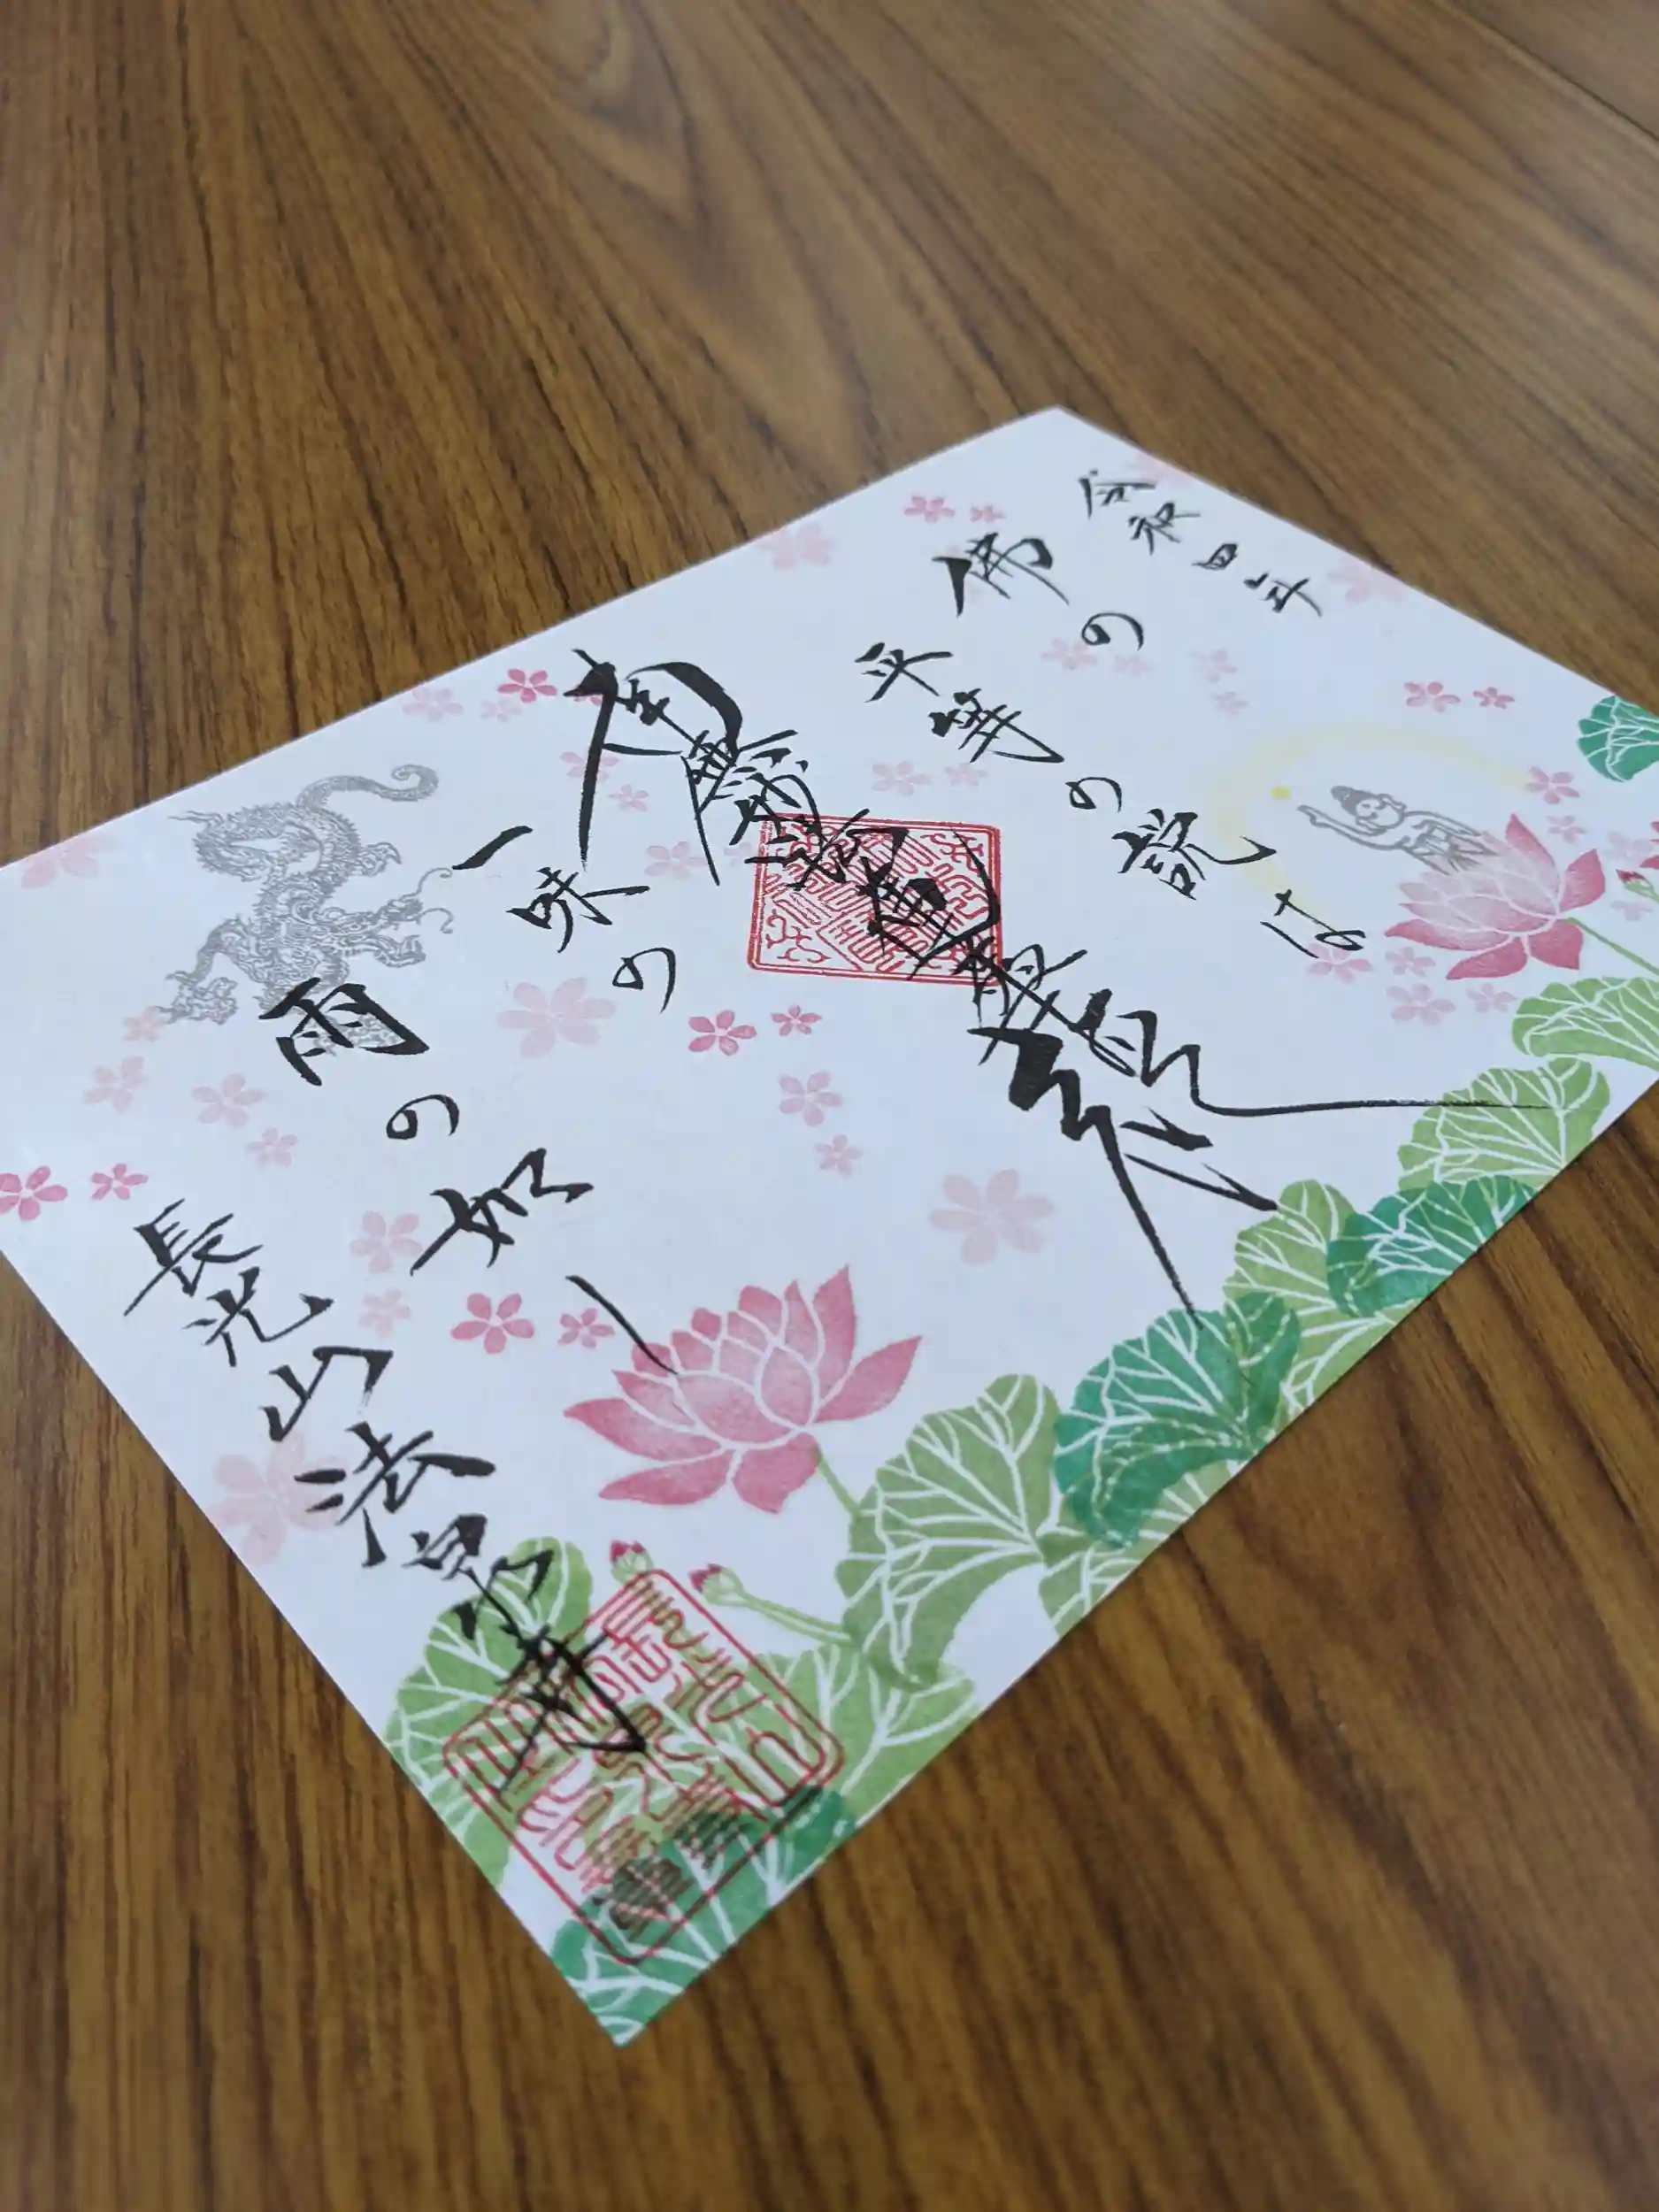 令和四年
佛の
平等の説は
南無妙法蓮華経
一味の
雨の
如し
長光山法昌寺